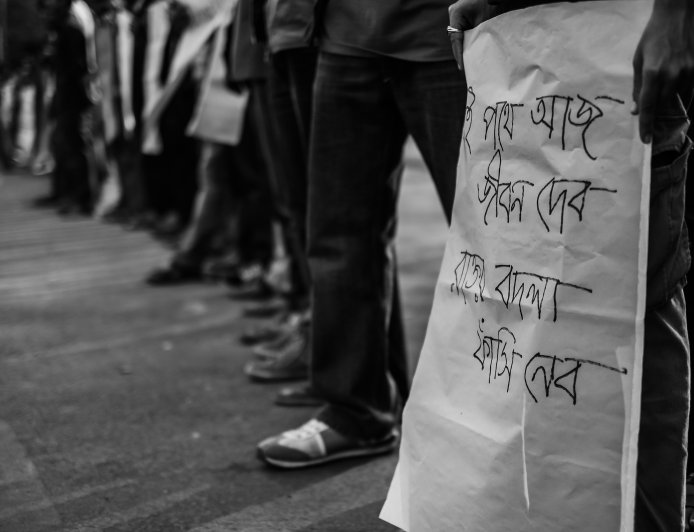 ই পথে আজ
জীবন দেব
বদলা
ফাঁসি নেব